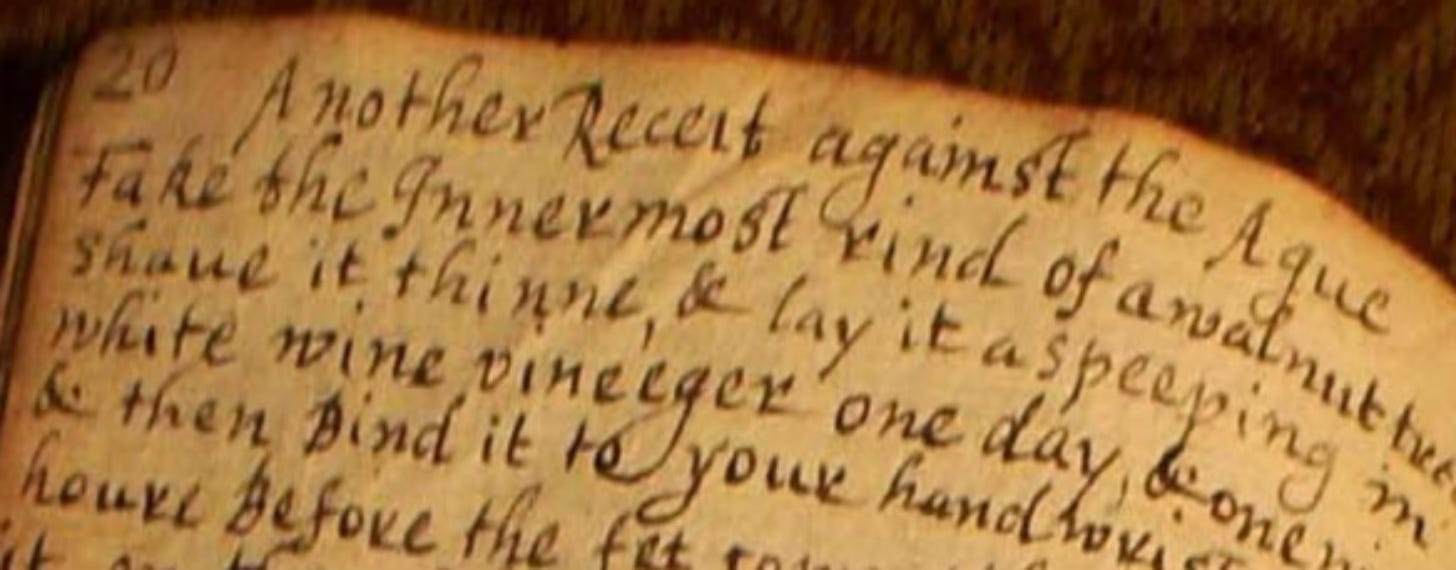 20
Another Receit against the Ague
Take the Innermost rind of a walnut tree
shaue it thinne, & lay it a speeping in
white wine vineeger one day, & one
& then Bind it to your hand wrist
houre Before the fet
it on